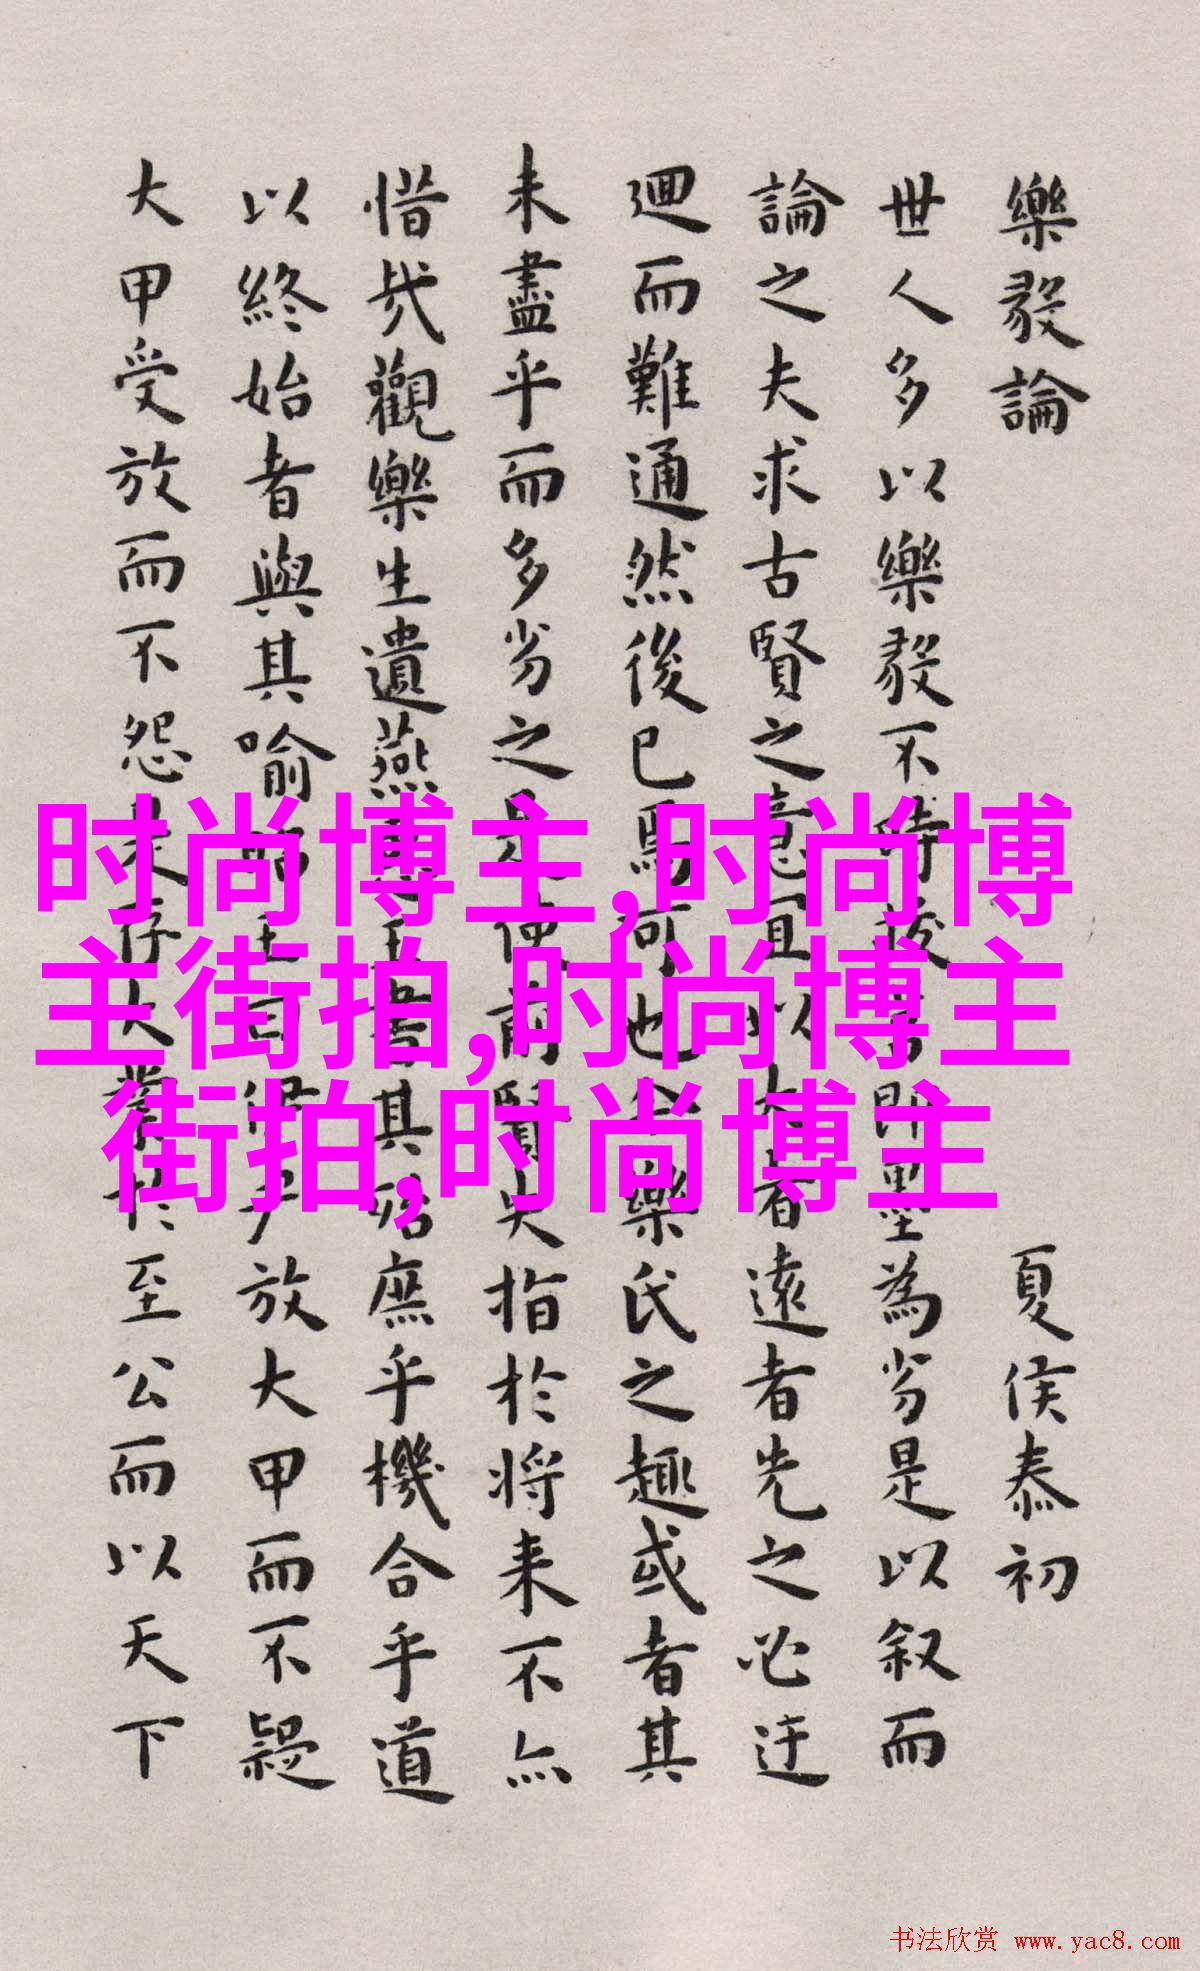 樂毅論 夏侯泰初
世人多以樂毅不時拔 即墨為劣是以叙而
論之夫求古賢之意宜以大者遠者先之必迂
迴而難通然後已焉可也 樂氏之趣或者其
未盡乎而多劣之是使前賢失指於將来不亦
惜哉觀樂生遺燕 書其殆庶乎機合乎道
以終始者與其喻 曰 放大甲而不疑
大甲受放而不怨 存大業於至公而以天下
时尚博主,时尚博
主街拍,时尚博主
街拍,时尚博主
书法欣赏 www.yac8.com